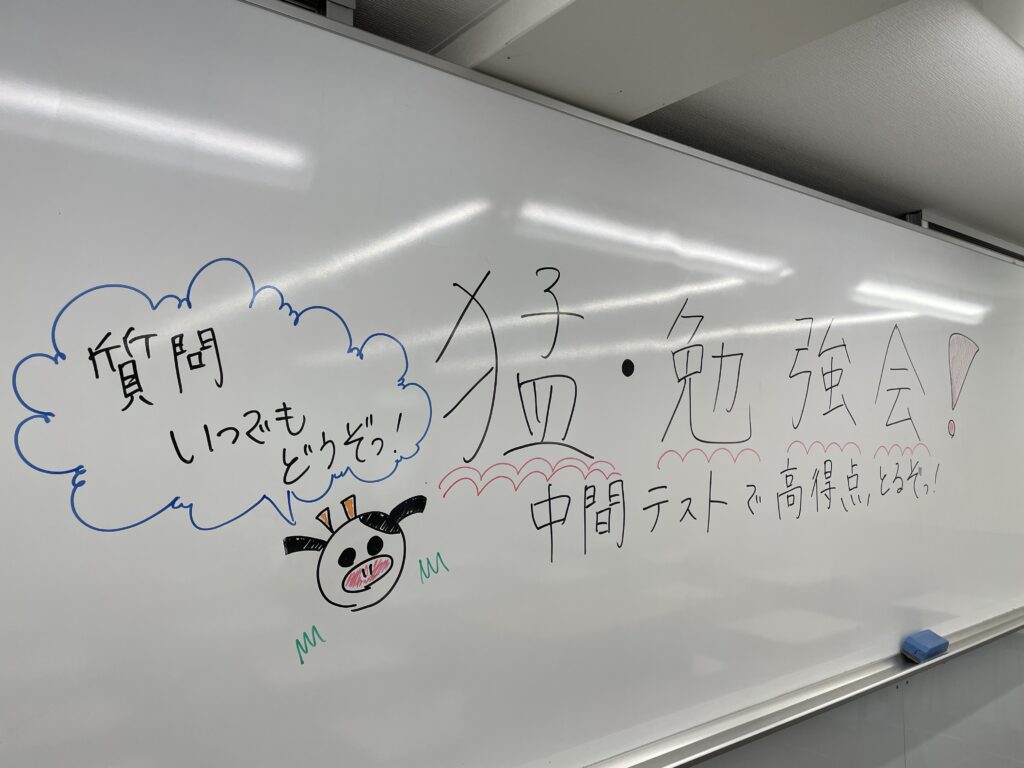 質問
いつでも
どうぞっ!
猛・勉強会!
中間テストで高得点、とるぞっ!